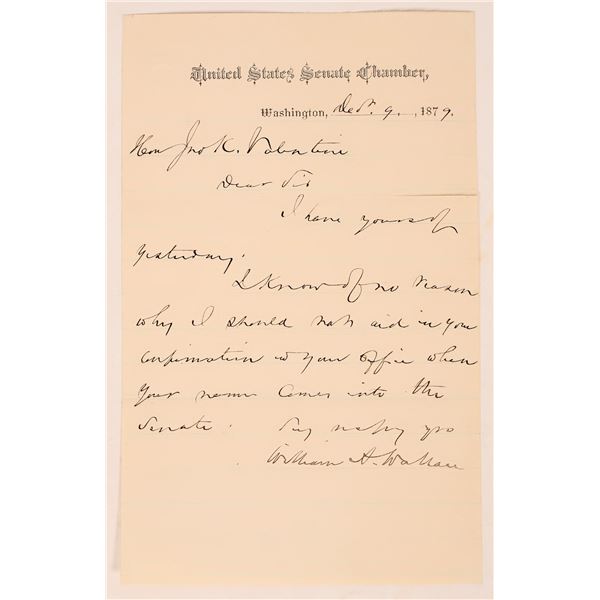 United States Senate Chamber,
Washington, Decr. 9, 1879.
Hon Jno K. Valentine
Dear Sir
I have yours of
yesterday.
I Know of no reason
why I should not aid in your
confirmation to your Office when
your name comes into the
Senate.
yrs
William A. Wallace